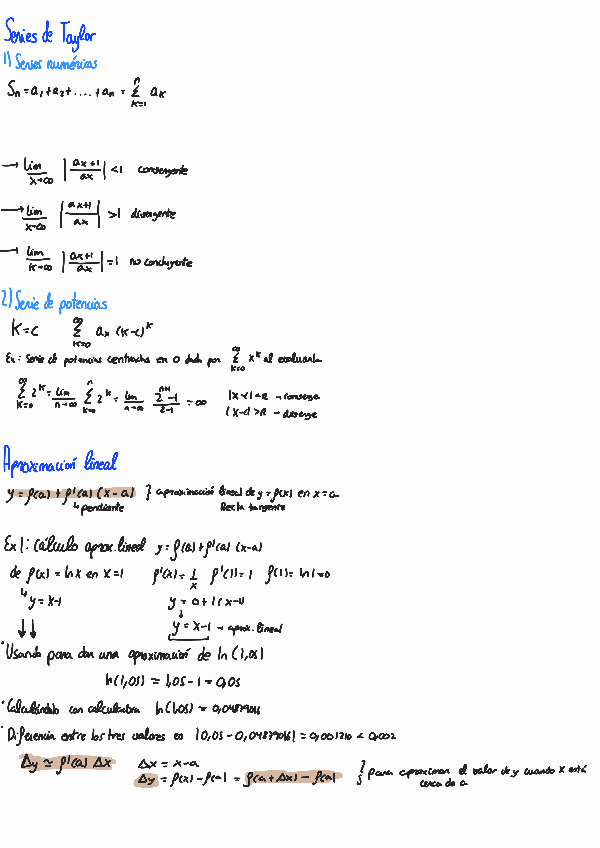 Series de Taylor
1) Series numéricas
Sn = a1 + a2 + .... + an = Σ_{K=1}^{n} aK
→ lim_{x→∞} |ax+1 / ax| < 1 convergente
→ lim_{x→∞} |ax+1 / ax| > 1 divergente
→ lim_{K→∞} |ax+1 / ax| = 1 no concluyente
2) Serie de potencias
K = c Σ_{K=0}^{∞} ax (x-c)^K
Ex: Serie de potencias centrada en 0 dada por Σ_{K=0}^{∞} x^K al evaluarla
Σ_{K=0}^{∞} 2^K = lim_{n→∞} Σ_{K=0}^{n} 2^K = lim_{n→∞} (2^{n+1} - 1)/(2-1) = ∞ |x-c| < R → converge
|x-c| > R → diverge
Aproximación lineal
y = f(a) + f'(a) (x-a) } aproximación lineal de y = f(x) en x = a
↳ pendiente Recta tangente
Ex 1: Cálculo aprox. lineal y = f(a) + f'(a) (x-a)
de f(x) = ln x en x=1 f'(x) = 1/x f'(1) = 1 f(1) = ln 1 = 0
↳ y = x-1 y = 0 + 1 (x-1)
↓↓ ↓
y = x-1 → aprox. lineal
· Usando para dar una aproximación de ln (1,05)
ln (1,05) ≃ 1,05 - 1 = 0,05
· Calculándolo con calculadora ln (1,05) ≃ 0,04879016
· Diferencia entre los tres valores es |0,05 - 0,04879016| = 0,001210 < 0,002
Δy ≃ f'(a) Δx Δx = x-a
Δy = f(x) - f(a) = f(a + Δx) - f(a) } para aproximar el valor de y cuando x está
cerca de a